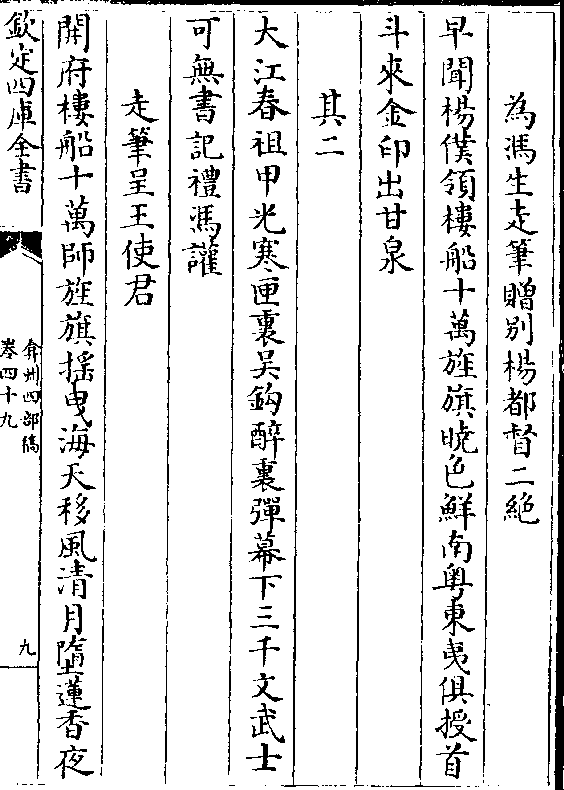 為馮生走筆贈別楊都督二絶
早聞楊僕領樓船十萬旌旗暁色鮮南粤東夷俱授首
斗來金印出甘泉
其二
大江春祖甲光寒匣裏吳鈎醉裏彈幕下三千文武士
可無書記禮馮讙
走筆呈王使君
開府樓船十萬師旌旗搖曳海天移風清月墮蓮香夜
欽定四庫全書
弇州四部稿
卷四十九
九